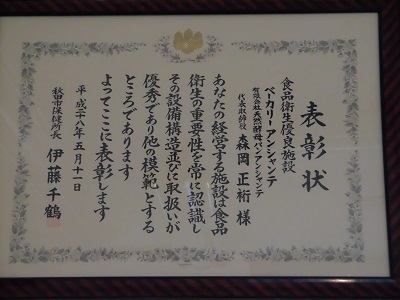 表彰状
食品衛生優良施設
ベーカリーアンシャンテ
有限会社天然酵母パンアンシャンテ
代表取締役 森岡正裕 様
あなたの経営する施設は食品
衛生の重要性を常に認識し
その設備構造並びに取扱いが
優秀であり他の模範とする
ところであります
よってここに表彰します
平成二十八年五月十一日
秋田市保健所長 伊藤千鶴